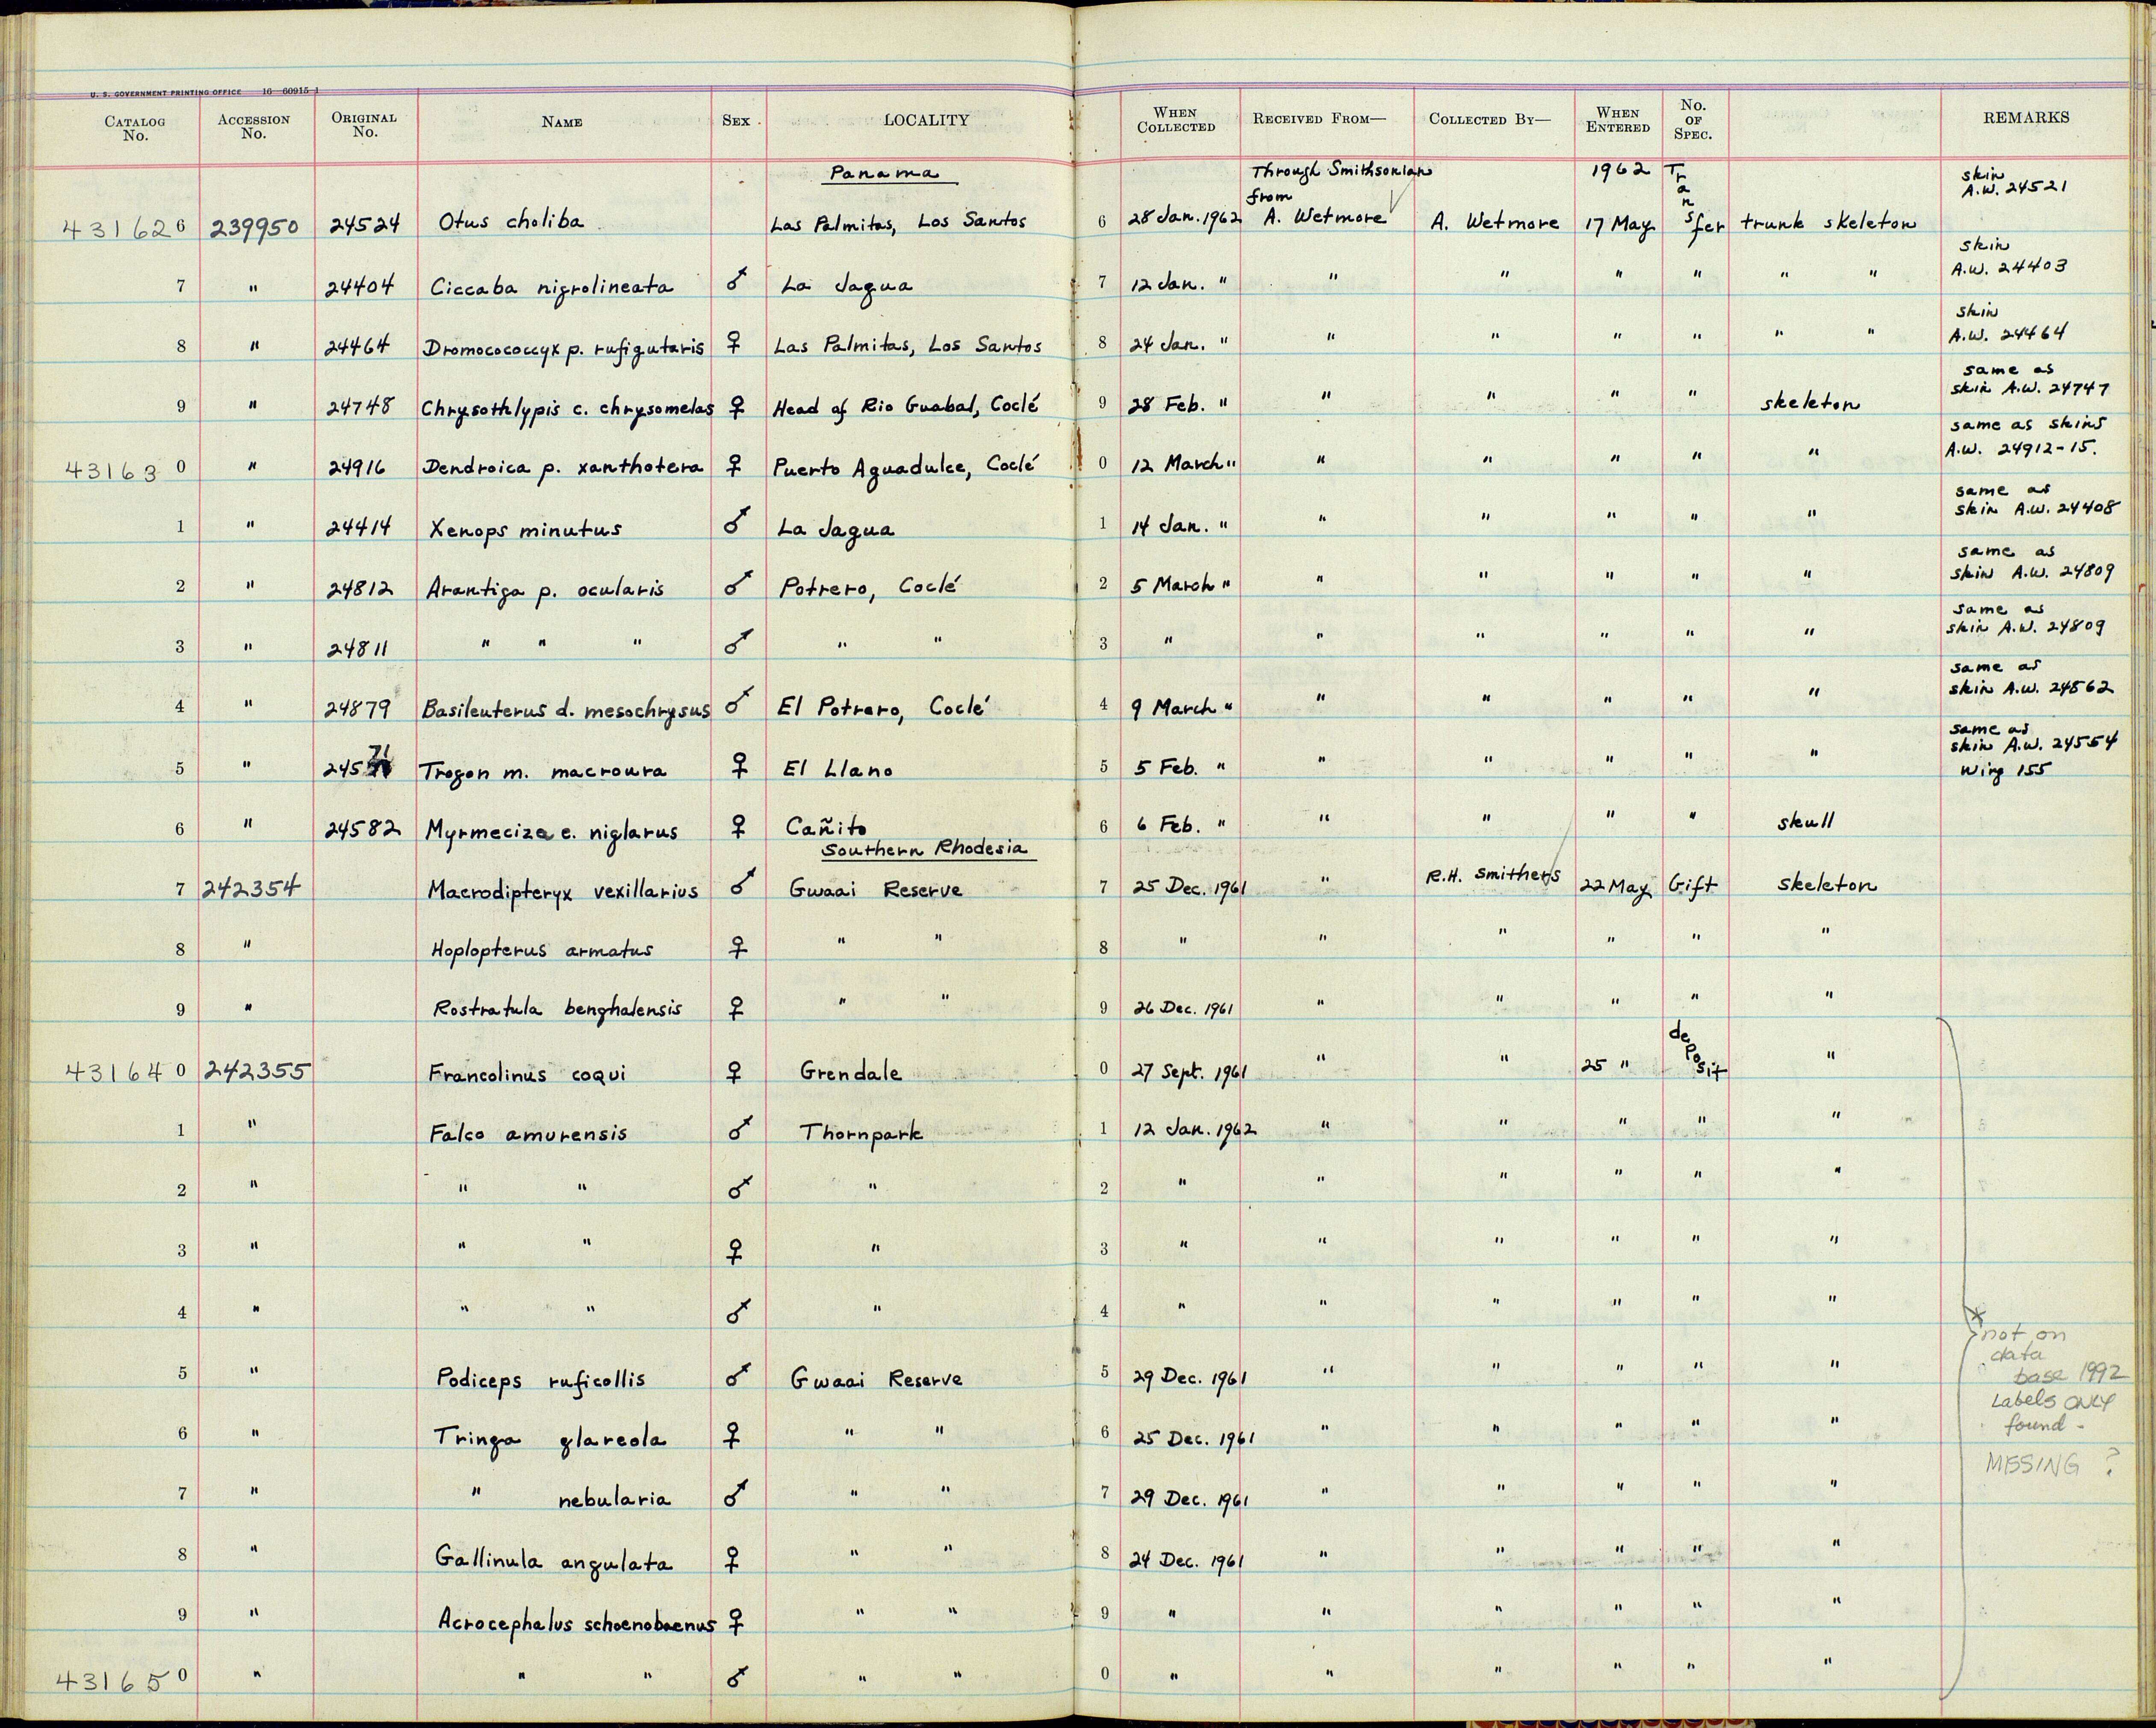 U. S. GOVERNMENT PRINTING OFFICE 16—60915-1
CATALOG No. ACCESSION No. ORIGINAL No. NAME SEX LOCALITY WHEN COLLECTED RECEIVED FROM— COLLECTED BY— WHEN ENTERED No. OF SPEC. REMARKS
Panama Through Smithsonian 1962 skin
from A.W. 24521
431626 239950 24524 Otus choliba Las Palmitas, Los Santos 6 28 Jan. 1962 A. Wetmore A. Wetmore 17 May Transfer trunk skeleton
skin
7 " 24404 Ciccaba nigrolineata ♂ La Jagua 7 12 Jan. " " " " " " " A.W. 24403
skin
8 " 24464 Dromocococcyx p. rufigutaris ♀ Las Palmitas, Los Santos 8 24 Jan. " " " " " " " A.W. 24464
same as
9 " 24748 Chrysothlypis c. chrysomelas ♀ Head of Rio Guabal, Coclé 9 28 Feb. " " " " " skeleton skin A.W. 24747
same as skins
431630 " 24916 Dendroica p. xanthotera ♀ Puerto Aguadulce, Coclé 0 12 March " " " " " " A.W. 24912-15.
same as
1 " 24414 Xenops minutus ♂ La Jagua 1 14 Jan. " " " " " " skin A.W. 24408
same as
2 " 24812 Arantiga p. ocularis ♂ Potrero, Coclé 2 5 March " " " " " " skin A.W. 24809
same as
3 " 24811 " " " ♂ " " 3 " " " " " " skin A.W. 24809
same as
4 " 24879 Basileuterus d. mesochrysus ♂ El Potrero, Coclé 4 9 March " " " " " " skin A.W. 24562
same as
5 " 24571 Trogon m. macroura ♀ El Llano 5 5 Feb. " " " " " " skin A.W. 24554
wing 155
6 " 24582 Myrmeciza e. niglarus ♀ Cañito 6 6 Feb. " " " " " skull
Southern Rhodesia
7 242354 Macrodipteryx vexillarius ♂ Gwaai Reserve 7 25 Dec. 1961 " R.H. Smithers 22 May Gift skeleton
8 " Hoplopterus armatus ♀ " " 8 " " " " " "
9 " Rostratula benghalensis ♀ " " 9 26 Dec. 1961 " " " " "
431640 242355 Francolinus coqui ♀ Grendale 0 27 Sept. 1961 " " 25 " deposit "
1 " Falco amurensis ♂ Thornpark 1 12 Jan. 1962 " " " " "
2 " " " ♂ " 2 " " " " " "
3 " " " ♀ " 3 " " " " " "
4 " " " ♂ " 4 " " " " " "
not on
data
5 " Podiceps ruficollis ♂ Gwaai Reserve 5 29 Dec. 1961 " " " " " base 1992
Labels ONLY
6 " Tringa glareola ♀ " " 6 25 Dec. 1961 " " " " " found -
MISSING ?
7 " " nebularia ♂ " " 7 29 Dec. 1961 " " " " "
8 " Gallinula angulata ♀ " " 8 24 Dec. 1961 " " " " "
9 " Acrocephalus schoenobaenus ♀ " " 9 " " " " " "
431650 " " " ♂ " " 0 " " " " " "